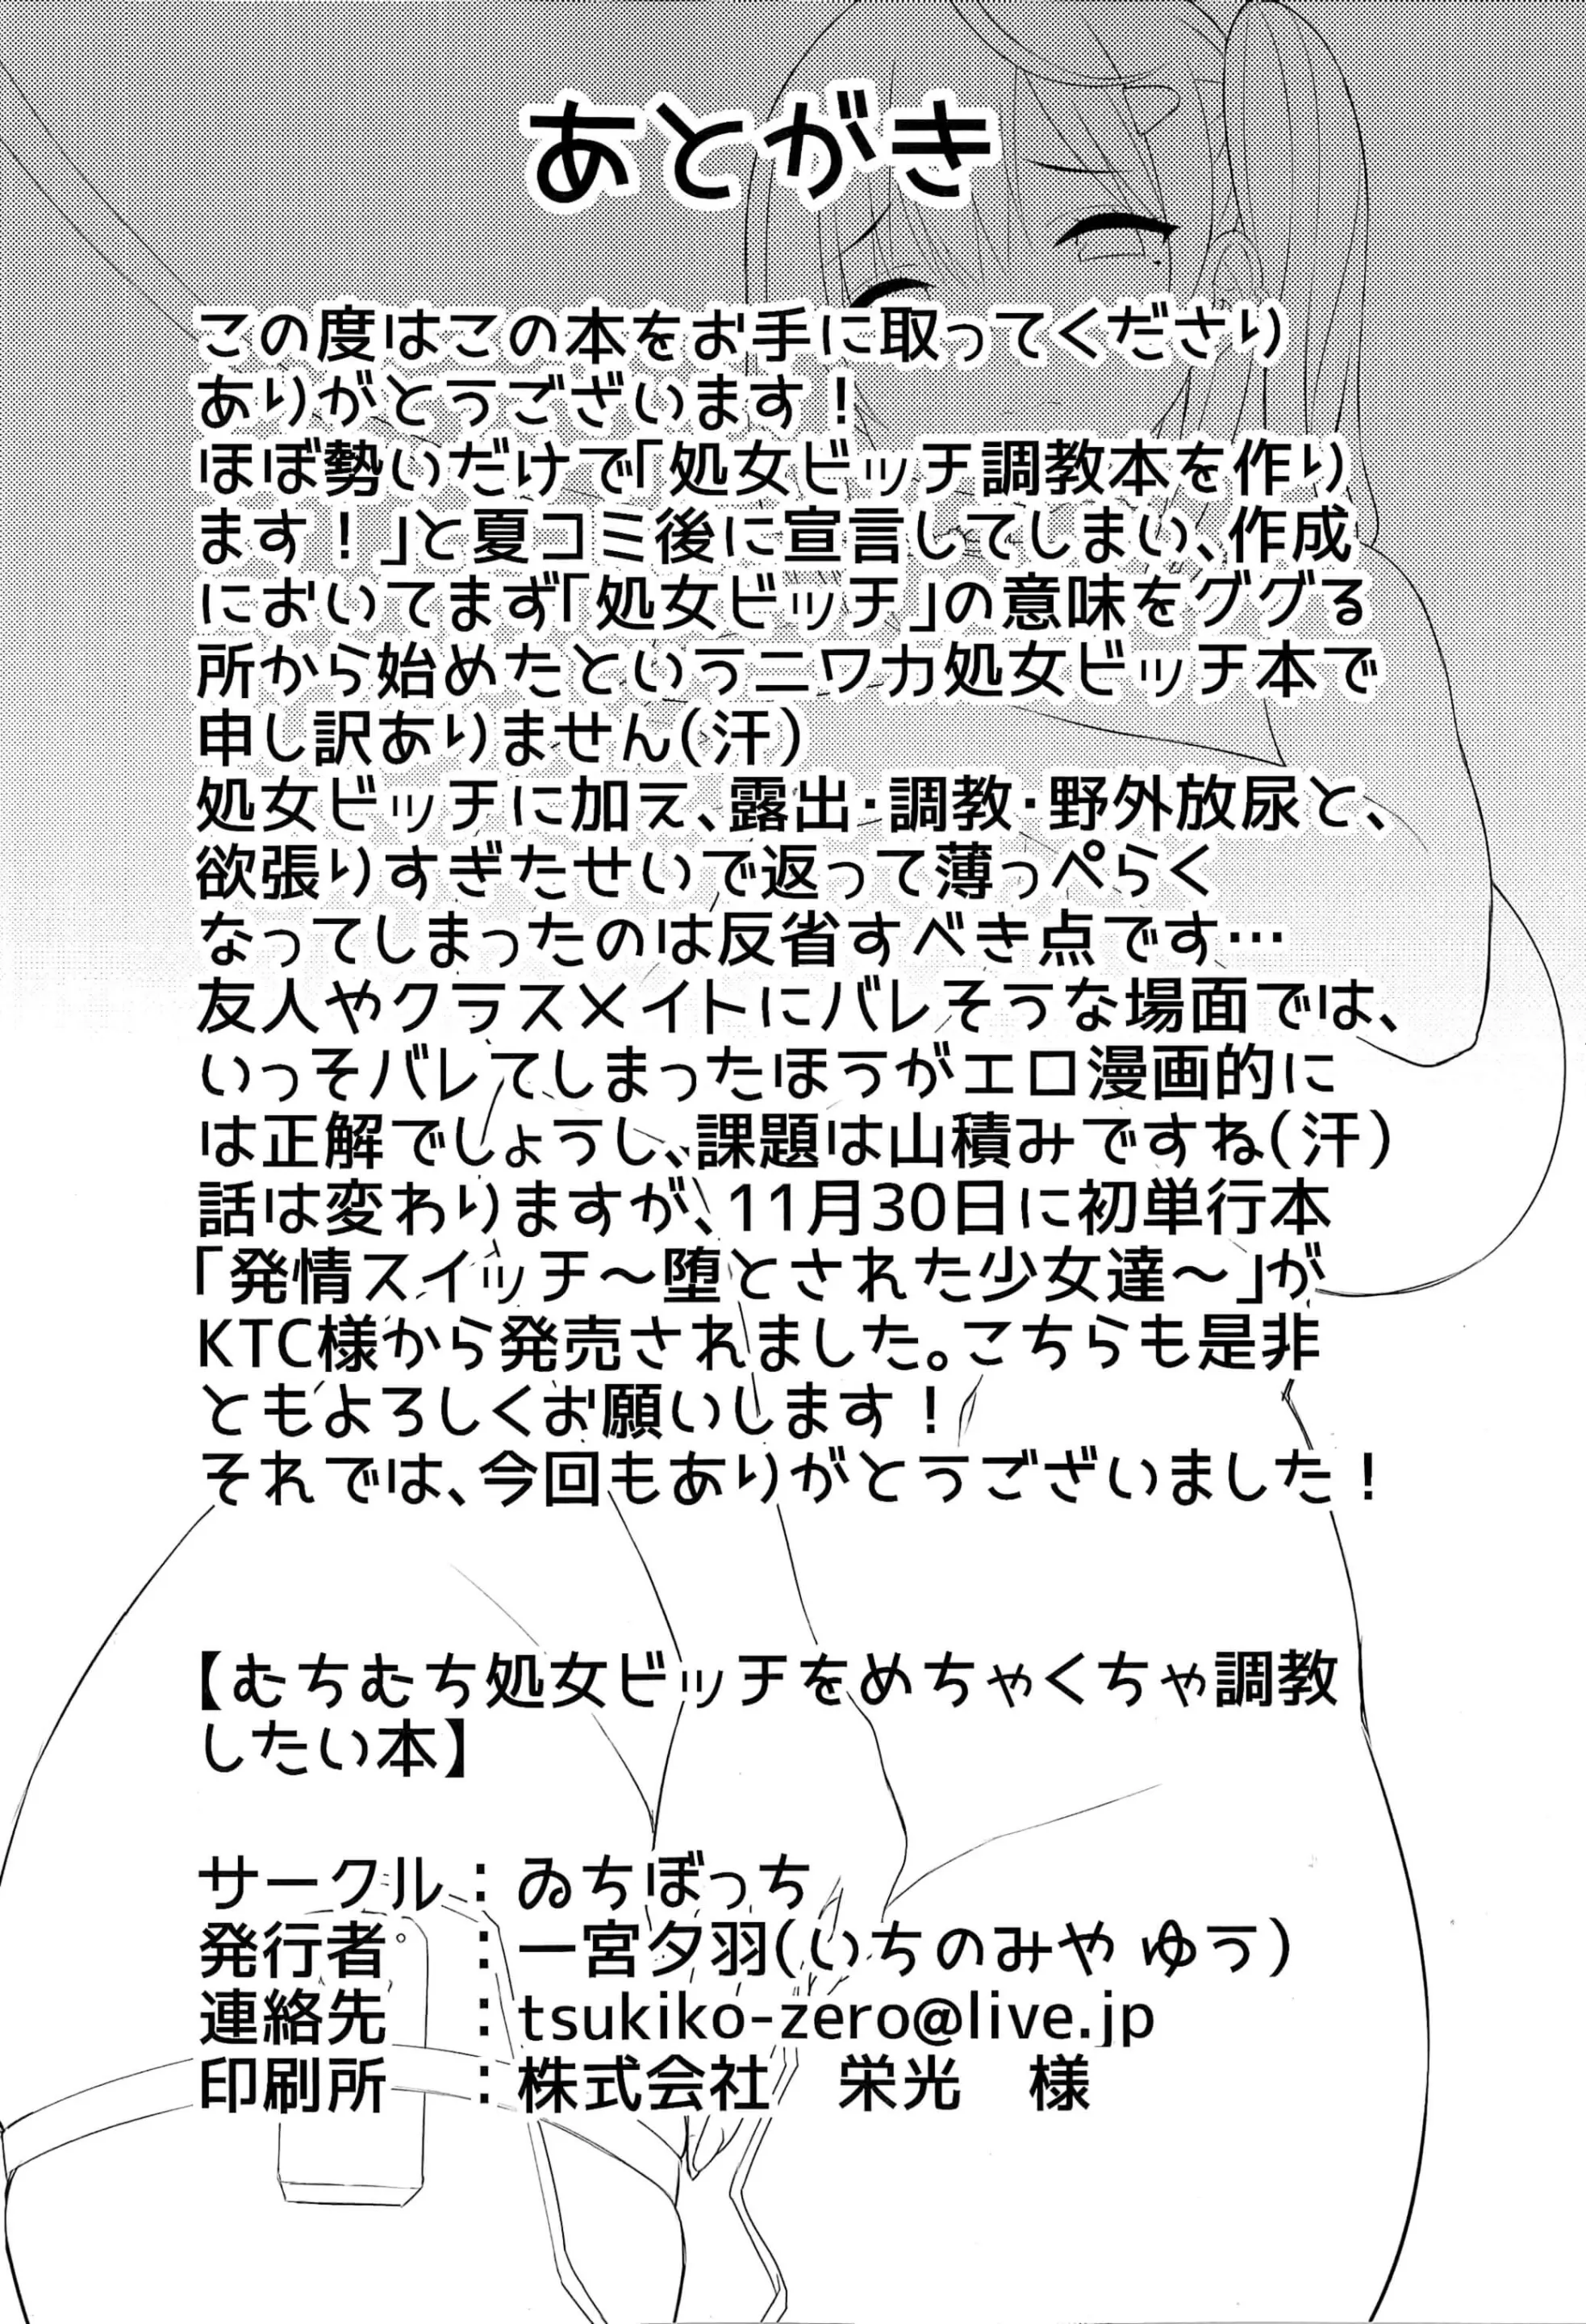 あとがき
この度はこの本をお手に取ってくださり
ありがとうございます！
ほぼ勢いだけで「処女ビッチ調教本を作り
ます！」と夏コミ後に宣言してしまい、作成
においてまず「処女ビッチ」の意味をググる
所から始めたというニワカ処女ビッチ本で
申し訳ありません（汗）
処女ビッチに加え、露出・調教・野外放尿と、
欲張りすぎたせいで返って薄っぺらく
なってしまったのは反省すべき点です…
友人やクラスメイトにバレそうな場面では、
いっそバレてしまったほうがエロ漫画的に
は正解でしょうし、課題は山積みですね（汗）
話は変わりますが、11月30日に初単行本
「発情スイッチ～堕とされた少女達～」が
KTC様から発売されました。こちらも是非
ともよろしくお願いします！
それでは、今回もありがとうございました！
【むちむち処女ビッチをめちゃくちゃ調教
したい本】
サークル：ゐちぼっち
発行者：一宮夕羽（いちのみや ゆう）
連絡先：tsukiko-zero@live.jp
印刷所：株式会社　栄光　様